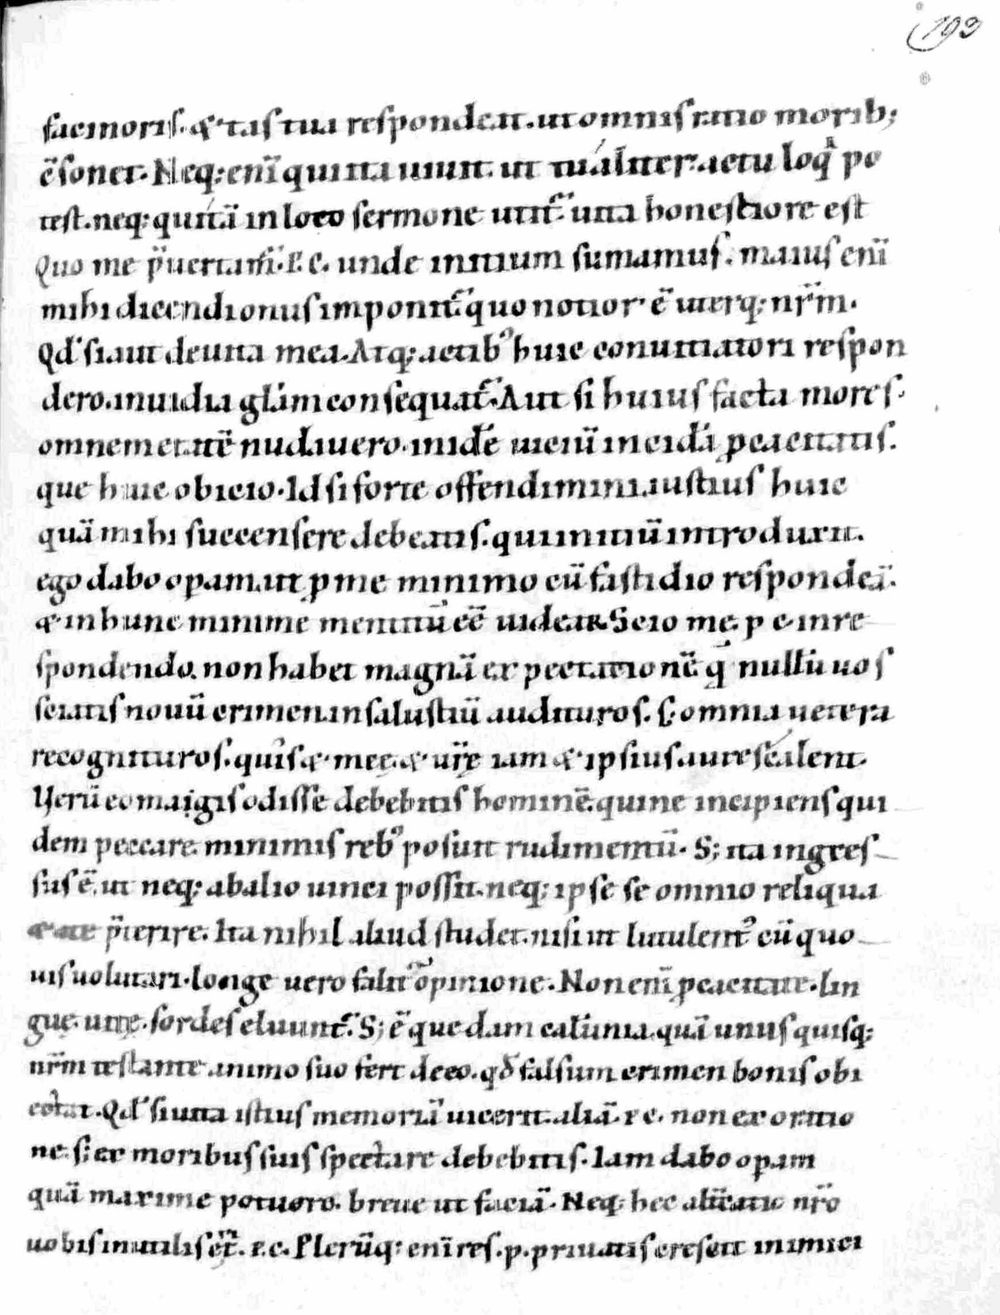 193
facinoris. & ętas tua respondeat. ut omnis ratio morib;
c̄sonet. Neq; enī qui ita uiuit. ut tu áliter. ac tu loq̇ po
test. neq; qui tā in loto sermone utit̄ uita honestiore est
Quo me p̄uertam̄. P. C. unde initium sumamus. maius enī
mihi dicendi onus imponit̄ quo notior ē uterq; nr̄m.
Qd̓ si aut de uita mea. Atq; actib᾽ huic conuitiatori respon
dero. inuidia glām consequat̄. Aut si huius facta mores.
omnem ętatē nudauero. in idē uitiū incidā pcacitatis.
que huic obicio. Id si forte offendimini. iustius huic
quā mihi succensere debeatis. qui initiū introduxit.
ego dabo opam. ut p me minimo cū fastidio respondeā.
& in hunc minime mentitū eē uideat̄. Scio me. p. c. in re
spondendo. non habet magnā expectationē q̄ nullū uos
sciatis nouū crimen. in salustiū audituros. S; omnia uetera
recognituros. quis & meę. & ur̄ę iam & ipsius aures calent.
Verū eo magis odisse debebitis hominē. qui ne incipiens qui
dem peccare. minimis reb᾽ posuit rudimentū. S; ita ingres
sus ē. ut neq; ab alio uinci possit. neq; ipse se omnio reliqua
ętate p̄terire. Ita nihil aliud studet. nisi ut lutulent᾽ cū quo
uis uolutari. longe uero fallit̄ opinione. Non enī pcacitate. lin
guę. uitę. sordes eluunt̄. S; ē quedam calūnia. quā unus quisq;
nr̄m testante animo suo fert de eo. qd̄ falsum crimen bonis obi
ectat. Qd̓ si uita istius memoriā uicerit. aliā. P. C. non ex oratio
ne. s; ex moribus suis spectare debebitis. Iam dabo opam
quā maxime potuero. breue ut faciā. Neq; hec altcatio nr̄o
uobis inutilis ēt̄. P. C. Plerūq; enī res. p. priuatis crescit inimici